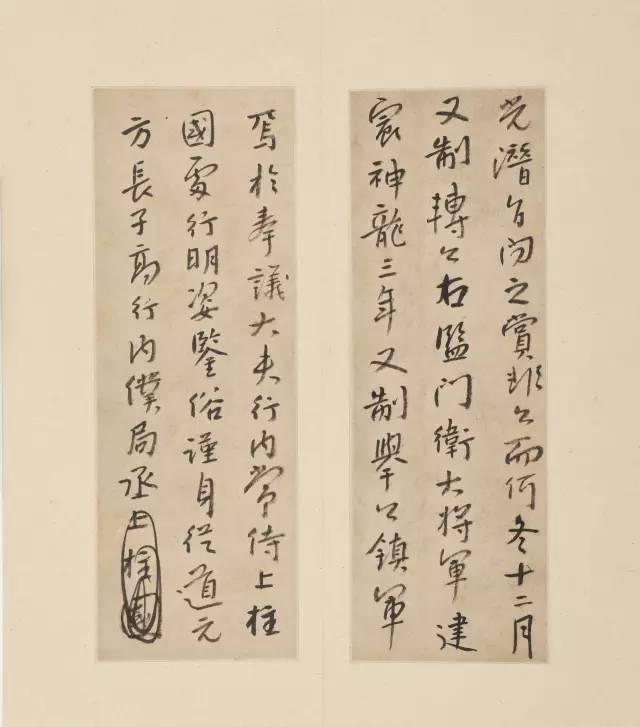 光潛问之賞公而何冬十二月
又制轉公右監门衛大将軍建
神龍三年又制舉公鎮軍
焉於奉議大夫行内常侍上柱
國行明姿鑒俗謹身從道元
方長子高行内僕局丞上柱國